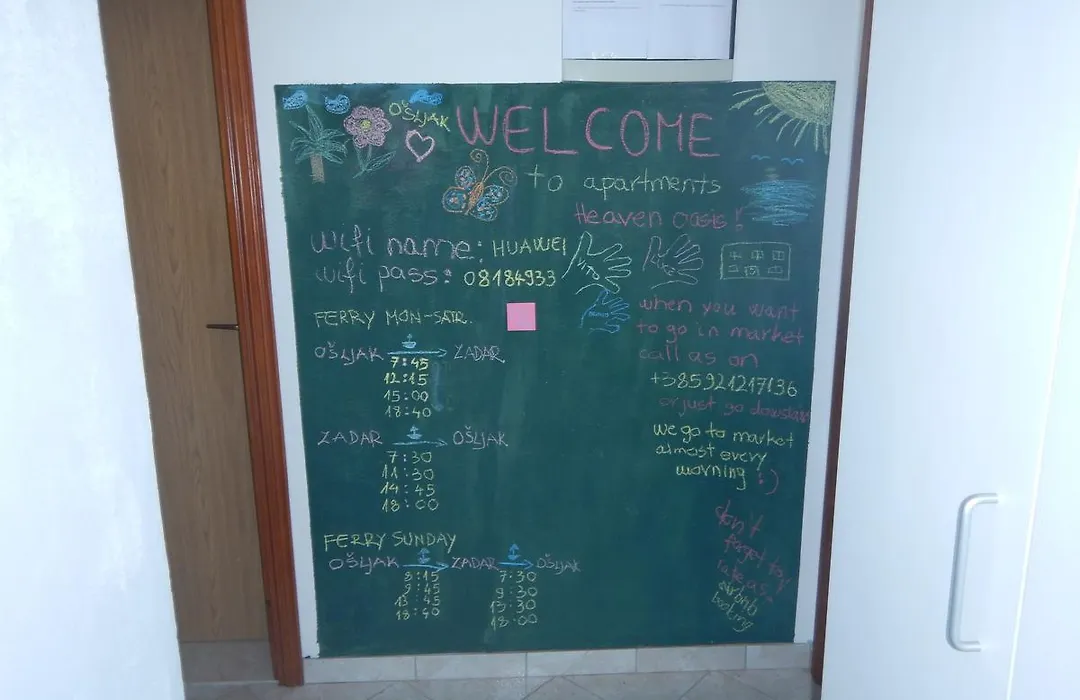 OŠLJAK
WELCOME
to apartments
Heaven oasis!
wifi name: HUAWEI
wifi pass: 08184933
FERRY MON-SATR.
OŠLJAK ZADAR
7:45
12:15
15:00
18:40
ZADAR OŠLJAK
7:30
11:30
14:45
18:00
FERRY SUNDAY
OŠLJAK ZADAR OŠLJAK
8:15 7:30
9:45 9:30
13:45 13:30
18:40 18:00
when you want
to go in market
call as on
+385921217136
or just go downstairs
we go to market
almost every
morning :)
don't
forget to
rate as!
airbnb
booking